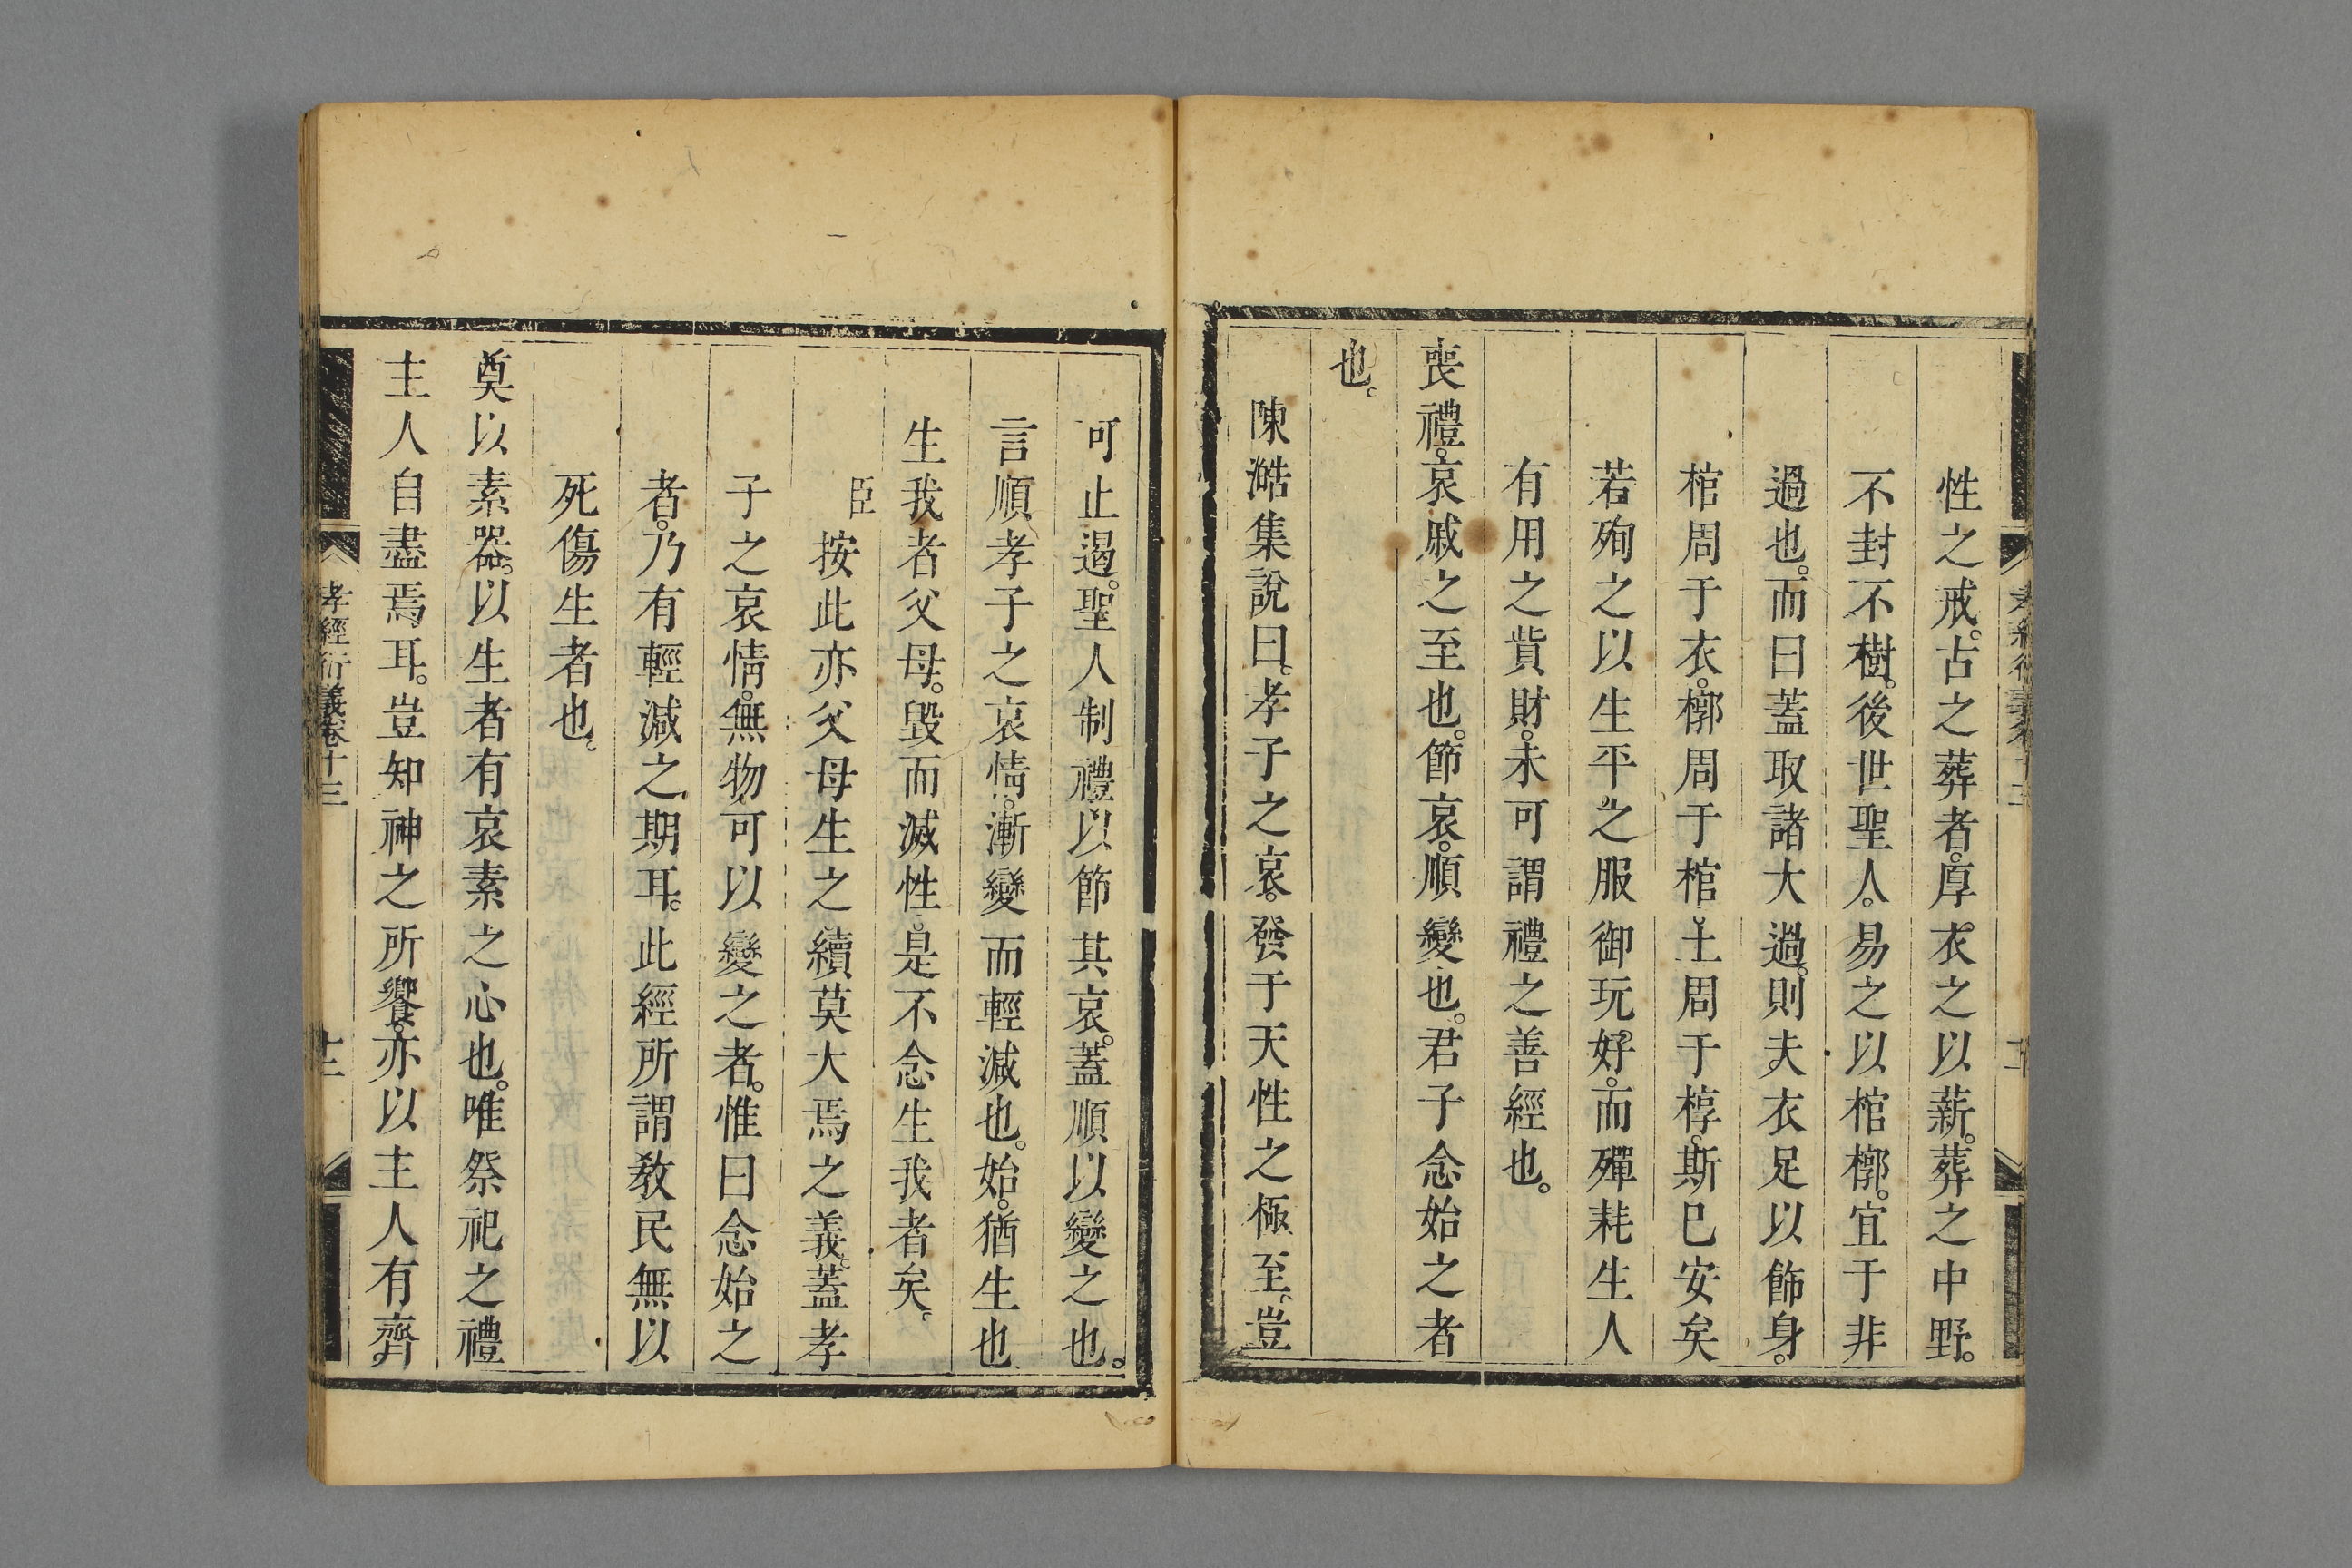 性之戒。古之葬者。厚衣之以薪。葬之中野。
不封不樹。後世聖人。易之以棺槨。宜于非
過也。而曰蓋取諸大過。則夫衣足以飾身。
棺周于衣。槨周于棺。土周于椁。斯已安矣
若殉之以生平之服御玩好。而殫耗生人
有用之貲財。未可謂禮之善經也。
喪禮。哀戚之至也。節哀。順變也。君子念始之者
也。
陳澔集說曰。孝子之哀。發于天性之極至。豈
可止遏。聖人制禮以節其哀。蓋順以變之也。
言順孝子之哀情。漸變而輕減也。始。猶生也
生我者父母。毀而滅性。是不念生我者矣。
臣按此亦父母生之續莫大焉之義。蓋孝
子之哀情。無物可以變之者。惟曰念始之
者。乃有輕減之期耳。此經所謂教民無以
死傷生者也。
奠以素器。以生者有哀素之心也。唯祭祀之禮
主人自盡焉耳。豈知神之所饗。亦以主人有齊
孝經衍義卷十三